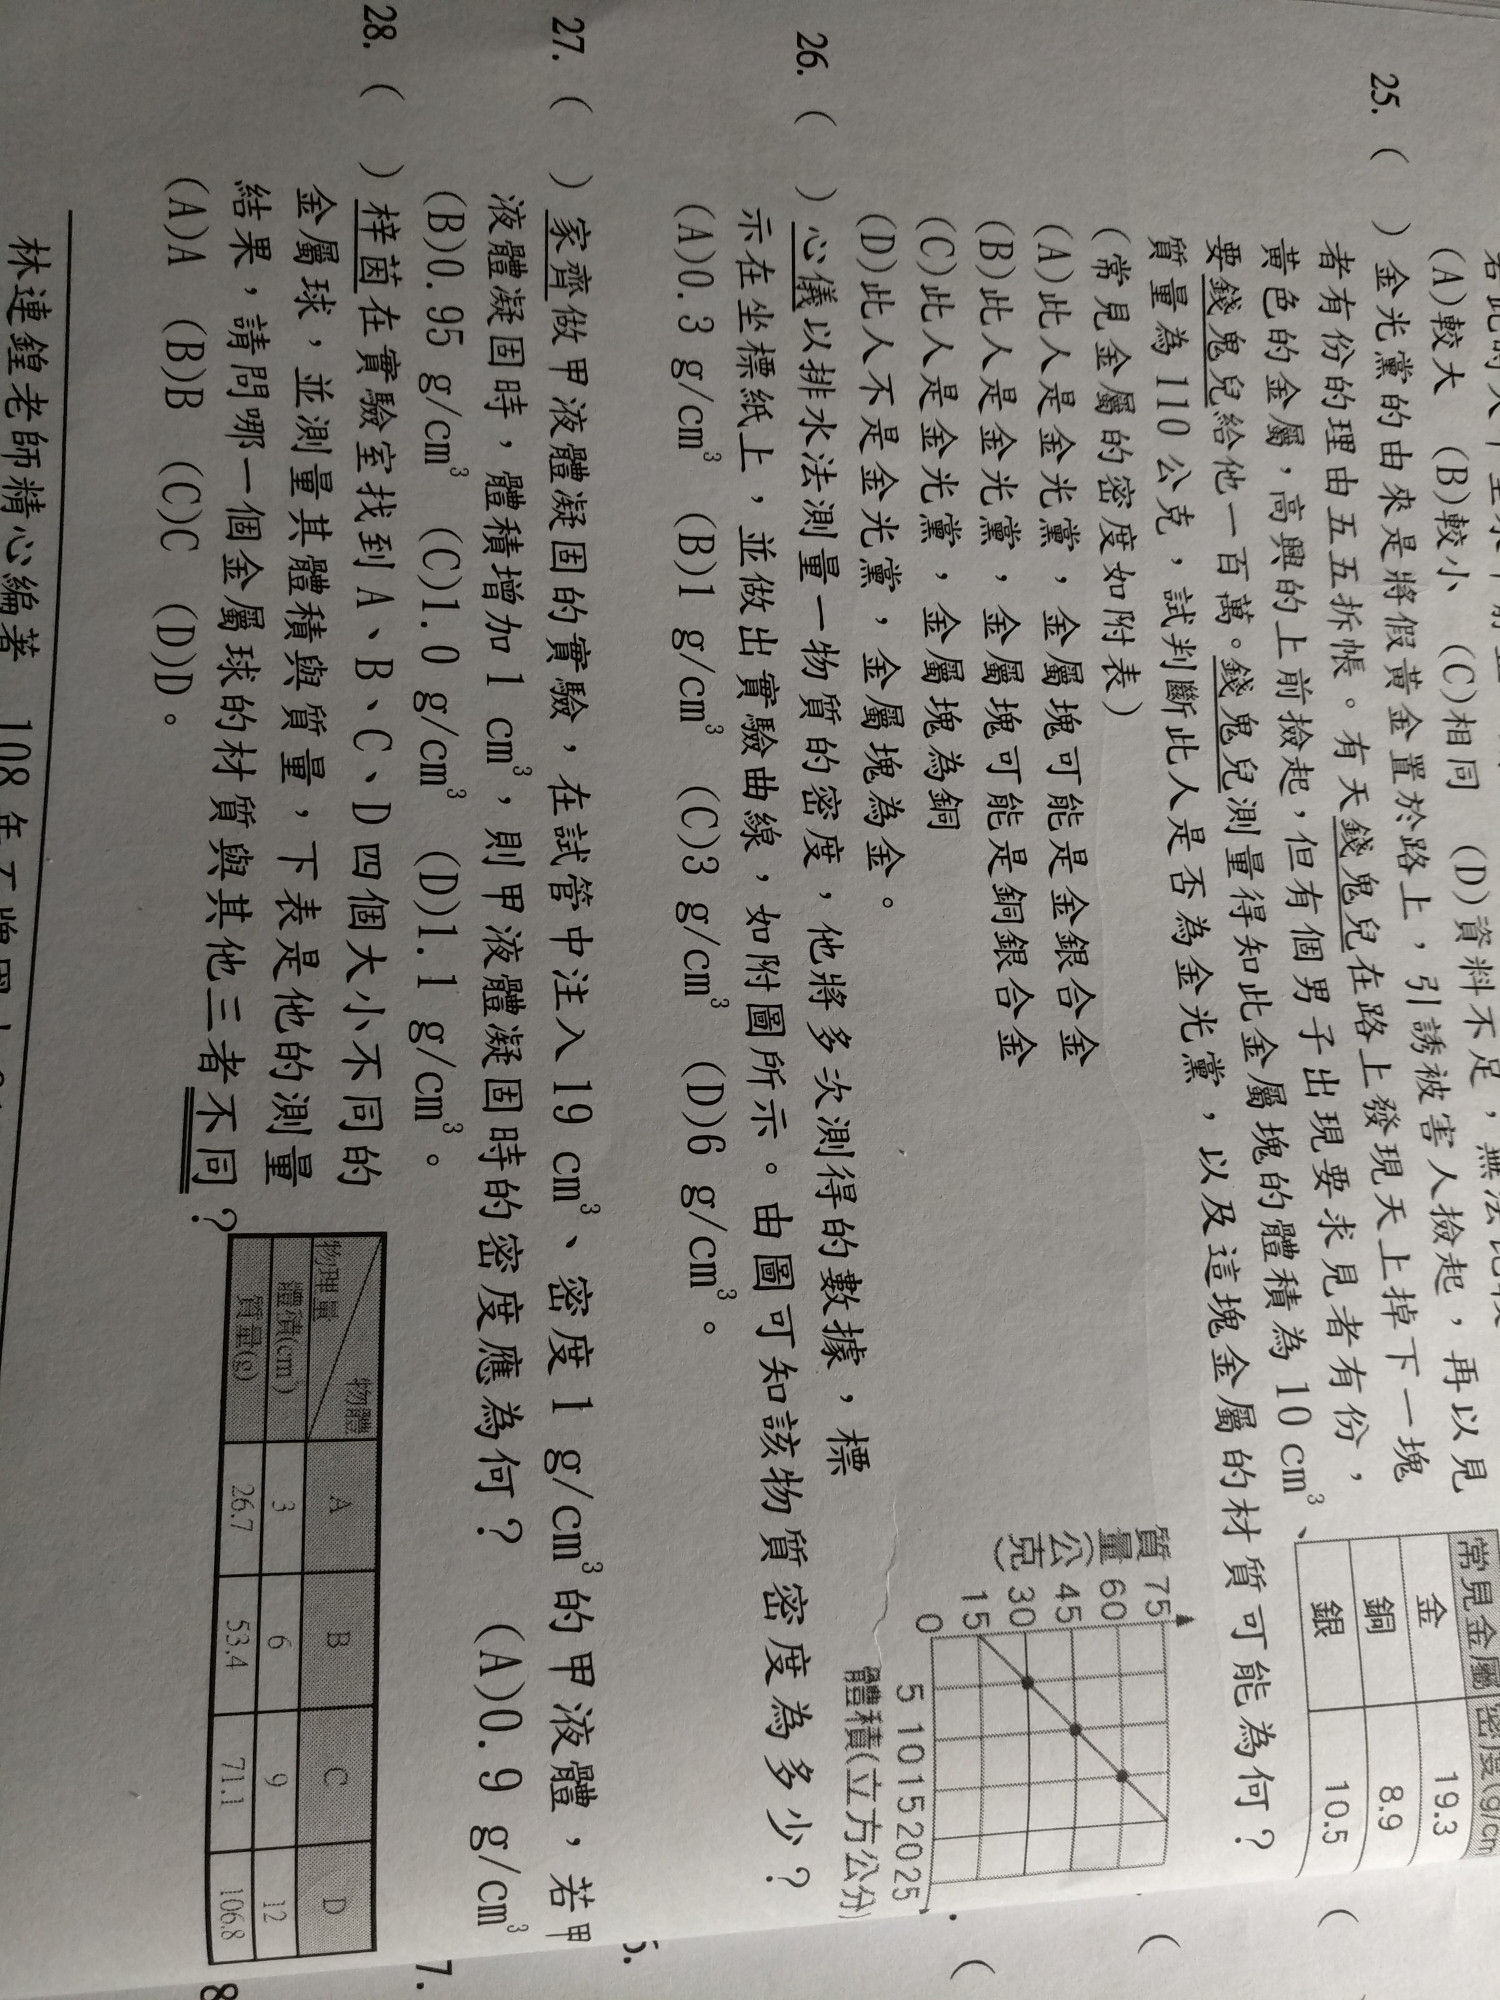 (A)較大 (B)較小 (C)相同 (D)資料不足,無法比較
25. ( ) 金光黨的由來是將假黃金置於路上,引誘被害人撿起,再以見
者有份的理由五五拆帳。有天錢鬼兒在路上發現天上掉下一塊
黃色的金屬,高興的上前撿起,但有個男子出現要求見者有份,
要錢鬼兒給他一百萬。錢鬼兒測量得知此金屬塊的體積為 10 cm³、
質量為 110 公克,試判斷此人是否為金光黨,以及這塊金屬的材質可能為何?
(常見金屬的密度如附表)
(A)此人是金光黨,金屬塊可能是金銀合金
(B)此人是金光黨,金屬塊可能是銅銀合金
(C)此人是金光黨,金屬塊為銅
(D)此人不是金光黨,金屬塊為金。
常見金屬 密度(g/cm
金 19.3
銅 8.9
銀 10.5
26. ( ) 心儀以排水法測量一物質的密度,他將多次測得的數據,標
示在坐標紙上,並做出實驗曲線,如附圖所示。由圖可知該物質密度為多少?
(A)0.3 g/cm³ (B)1 g/cm³ (C)3 g/cm³ (D)6 g/cm³。
質量(公克)
75
60
45
30
15
0
5 10 15 20 25
體積(立方公分)
27. ( ) 家齊做甲液體凝固的實驗,在試管中注入 19 cm³、密度 1 g/cm³的甲液體,若甲
液體凝固時,體積增加 1 cm³,則甲液體凝固時的密度應為何? (A)0.9 g/cm³
(B)0.95 g/cm³ (C)1.0 g/cm³ (D)1.1 g/cm³。
28. ( ) 梓茵在實驗室找到 A、B、C、D 四個大小不同的
金屬球,並測量其體積與質量,下表是他的測量
結果,請問哪一個金屬球的材質與其他三者不同?
(A)A (B)B (C)C (D)D。
物理量 物體 A B C D
體積(cm³) 3 6 9 12
質量(g) 26.7 53.4 71.1 106.8
林連鍠老師精心編著 108 年
7.
8